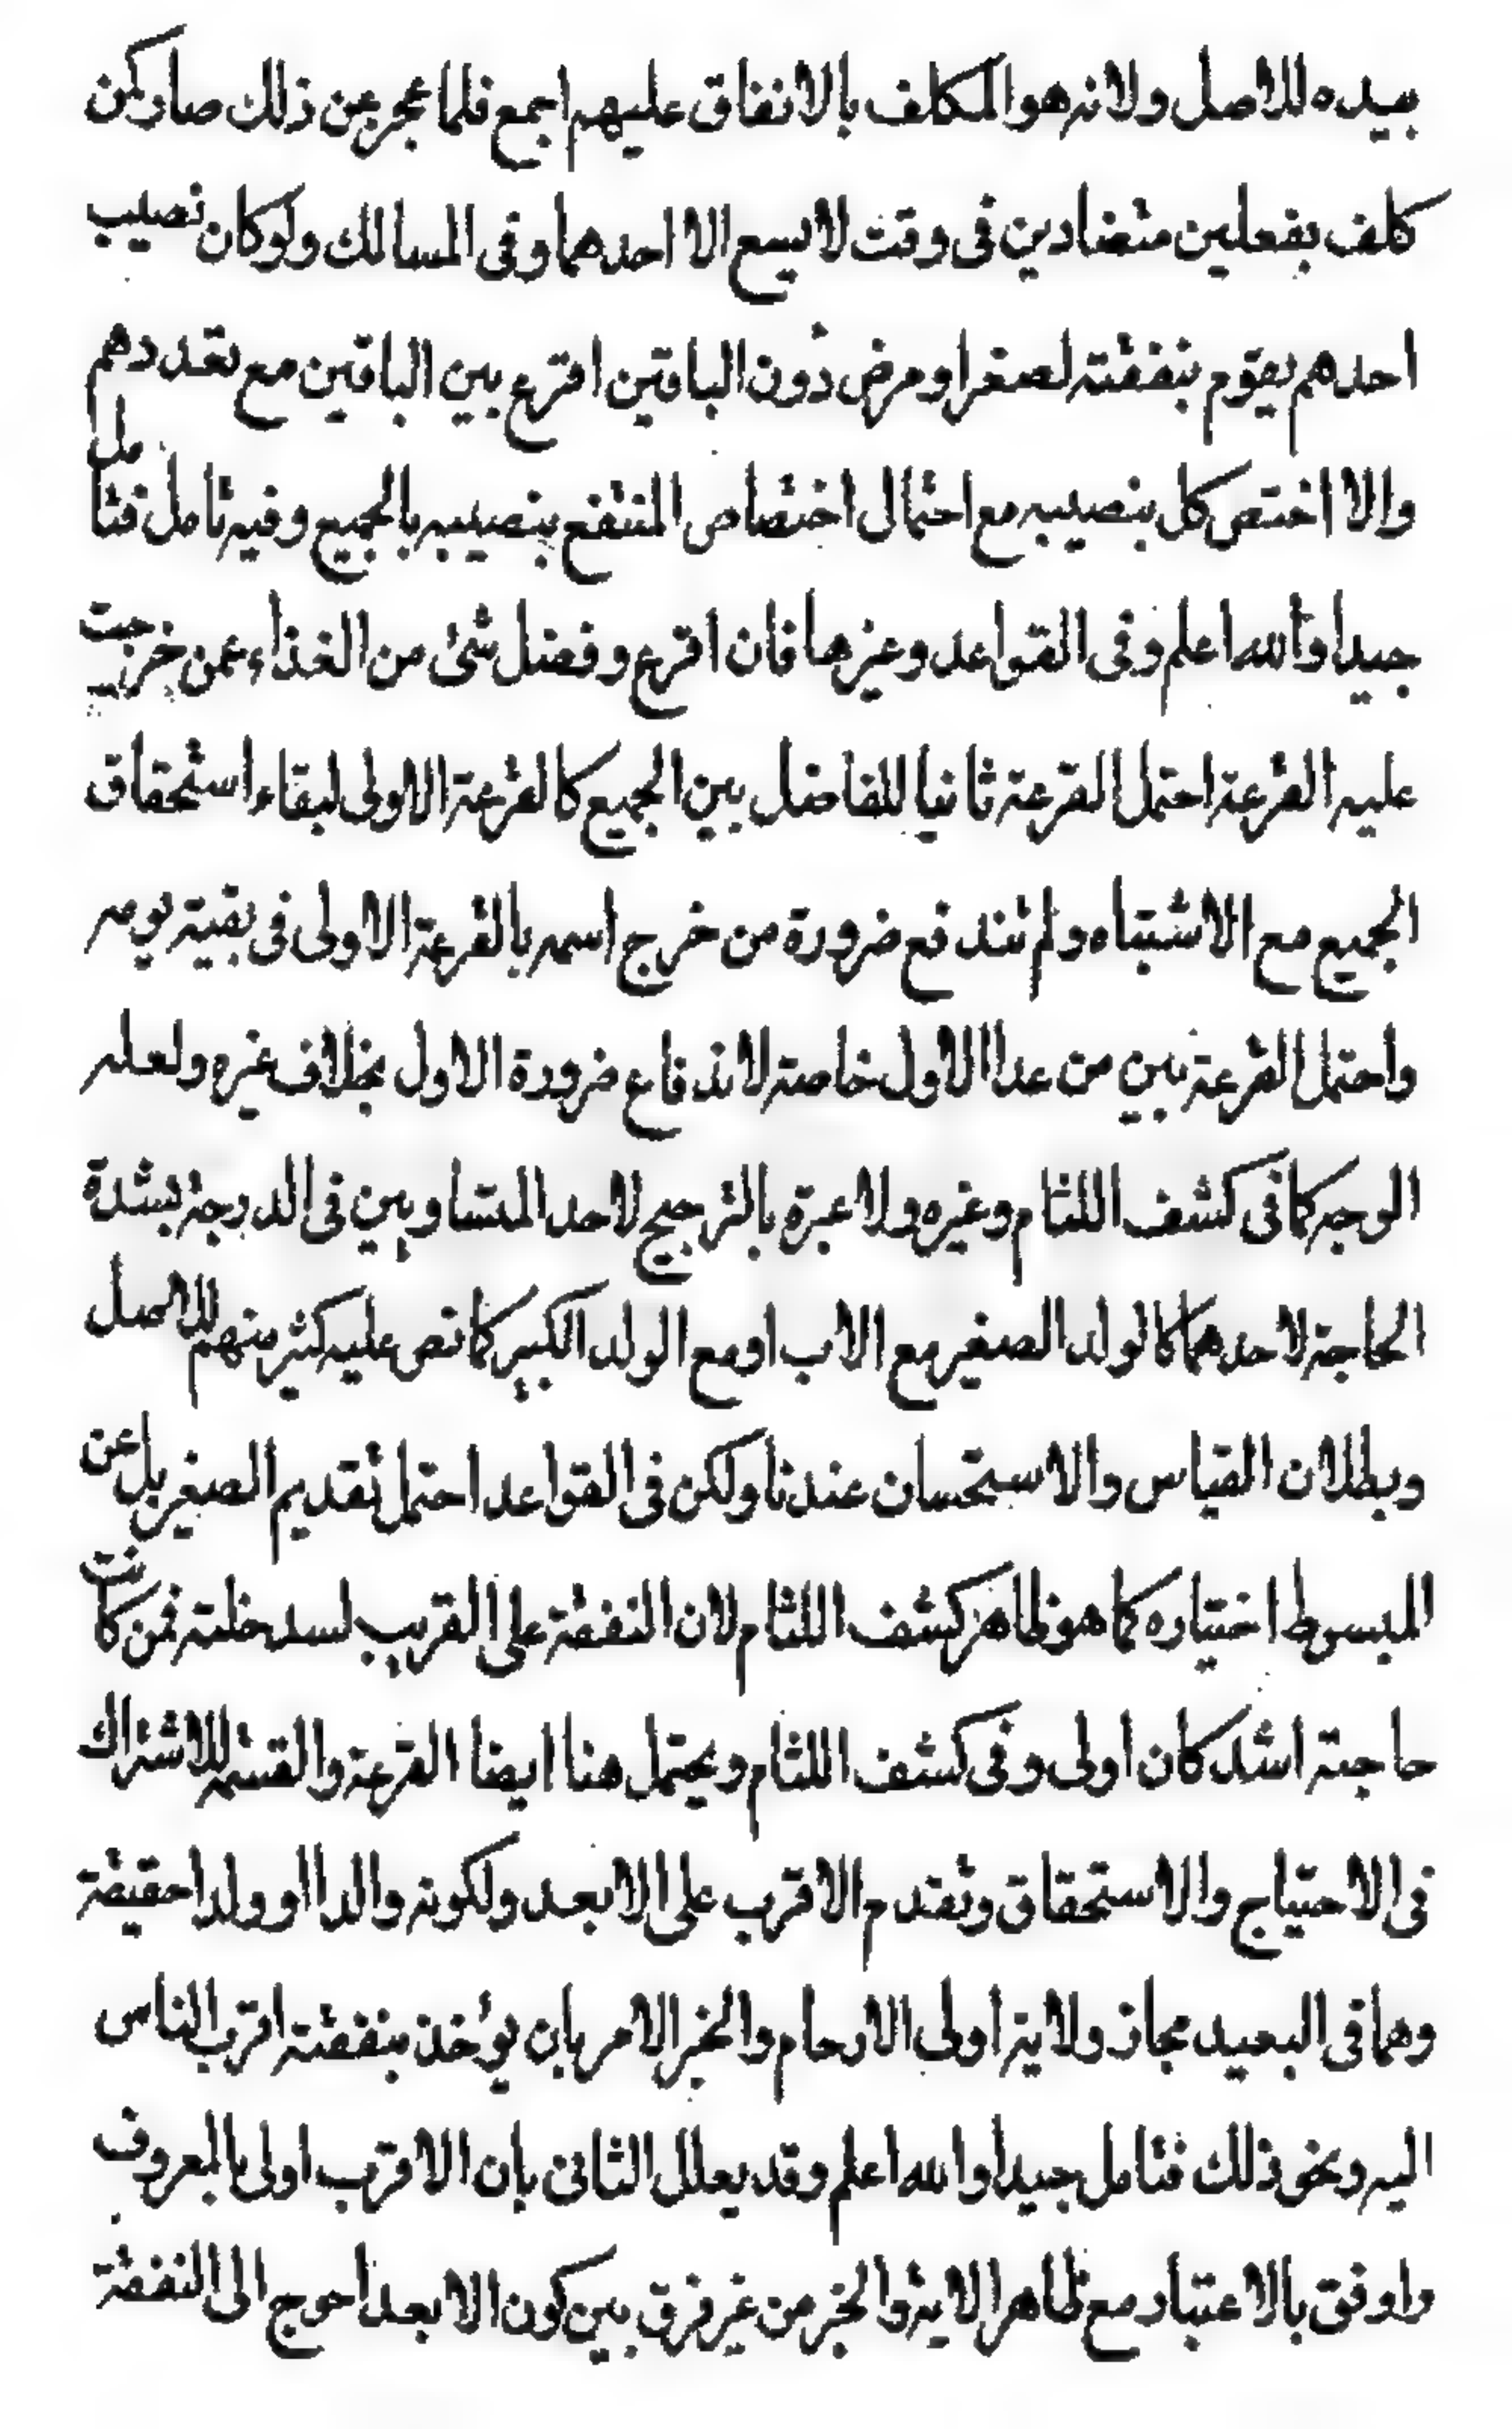 بيده للاصل ولانه هو المكلف بالانفاق عليهم اجمع فلما عجز عن ذلك صار كمن
كلف بفعلين متضادين فى وقت لا يسع الا احدهما وفى المسالك ولو كان نصيب
احدهم يقوم بنفقته لصغر او مرض دون الباقين اقترع بين الباقين مع تعددهم
والا اختص كل بنصيبه مع احتمال اختصاص المنتفع بنصيبه بالجميع وفيه تامل فتامل
جيدا والله اعلم وفى القواعد وغيرها فان اقترع وفضل شئ من الغذاء عمن خرجت
عليه القرعة احتمل القرعة ثانيا للفاضل بين الجميع كالقرعة الاولى لبقاء استحقاق
الجميع مع الاشتباه ولم تندفع ضرورة من خرج اسمه بالقرعة الاولى فى بقية يومه
واحتمل القرعة بين من عدا الاول خاصة لاندفاع ضرورة الاول بخلاف غيره ولعله
الوجه كما فى كشف اللثام وغيره ولا عبرة بالترجيح لاحد المتساويين فى الدرجة بشدة
الحاجة لاحدهما كالولد الصغير مع الاب او مع الولد الكبير كما نص عليه كثير منهم للاصل
وبطلان القياس والاستحسان عندنا ولكن فى القواعد احتمل تقديم الصغير بل عن
المبسوط اختياره كما هو ظاهر كشف اللثام لان النفقة على القريب لسد خلته فمن كانت
حاجته اشد كان اولى وفى كشف اللثام ويحتمل هنا ايضا القرعة والقسمة للاشتراك
فى الاحتياج والاستحقاق وتقدم الاقرب على الابعد ولكونه والدا او ولدا حقيقة
وهما فى البعيد مجاز ولاية اولى الارحام والخبر الامر بان يؤخذ بنفقته اقرب الناس
اليه ونحو ذلك فتامل جيدا والله اعلم وقد يعلل الثانى بان الاقرب اولى بالمعروف
واوفق بالاعتبار مع ظاهر الاية والخبر من غير فرق بين كون الابعد احوج الى النفقة